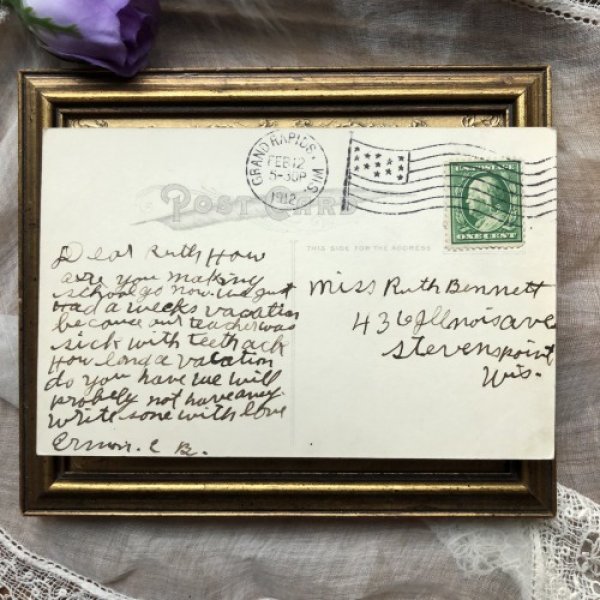 GRAND RAPIDS. WIS.
FEB 12
5-30P
1912
POST CARD
THIS SIDE FOR THE ADDRESS
ONE CENT
Dear Ruth How
are you making
school go now. we just
had a weeks vacation
because our teacher was
sick with teethack
How long a vacation
do you have we will
probely not have any.
write sone with love
C B.
Miss Ruth Bennett
436 Illnois ave
Stevenspoint
Wis.